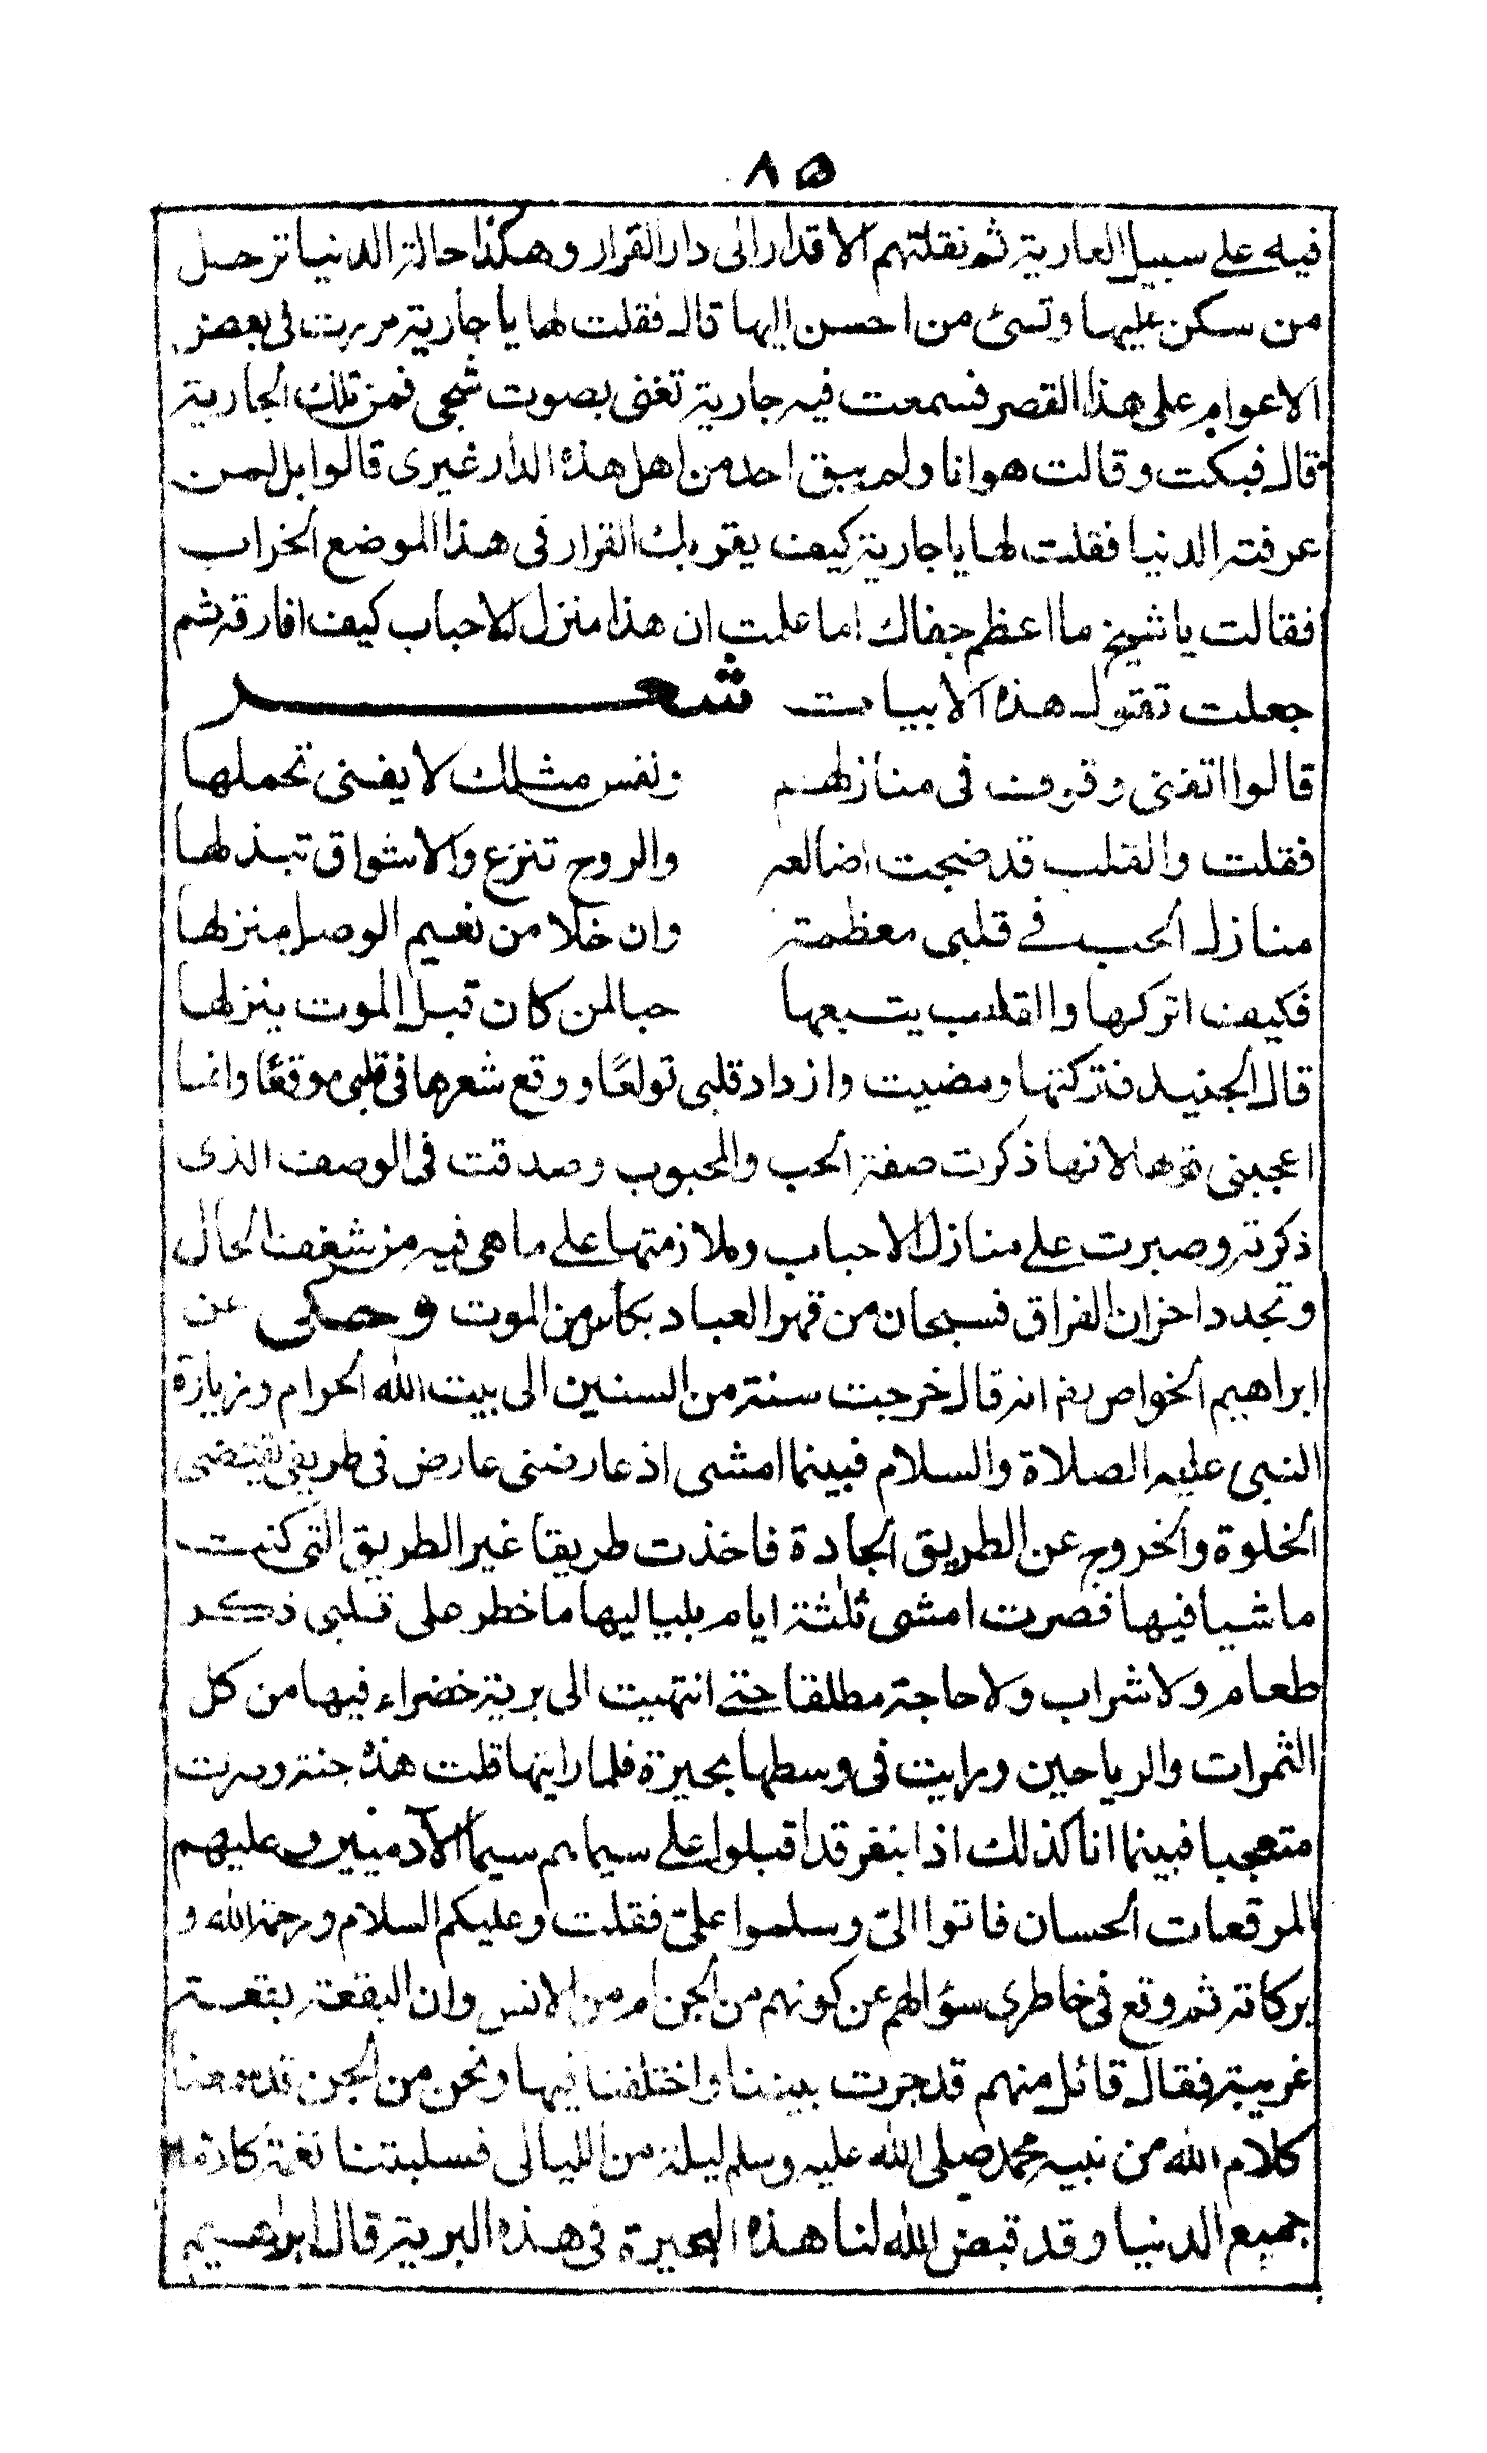 ٨٥
فيه على سبيل العارية ثم نقلتهم الاقدار الى دار القرار وهكذا حالة الدنيا ترحل
من سكن عليها وتسئ من احسن اليها قال فقلت لها يا جارية مررت فى بعض
الاعوام على هذا القصر فسمعت فيه جارية تغنى بصوت شجى فمن تلك الجارية
قال فبكت وقالت هو انا ولم يبق احد من اهل هذه الدار غيرى قالوا بل لمن
عرفته الدنيا فقلت لها يا جارية كيف يقر بك القرار فى هذا الموضع الخراب
فقالت يا شيخ ما اعظم جفاك اما علمت ان هذا منزل الاحباب كيف افارقه ثم
جعلت تقول هذه الابيات شعر
قالوا اتفنى وقوف فى منازلهم ونفس مثلك لا يفنى تحملها
فقلت والقلب قد ضجت اضالعه والروح تنزع والاشواق تبذلها
منازل الحب فى قلبى معظمة وان خلا من نعيم الوصل منزلها
فكيف اتركها والقلب يتبعها حبا لمن كان قبل الموت ينزلها
قال الجنيد فتركتها ومضيت وازداد قلبى تولعًا ووقع شعرها فى قلبى موقعًا وانما
اعجبنى لانها ذكرت صفة الحب والمحبوب وصدقت فى الوصف الذى
ذكرته وصبرت على منازل الاحباب وملازمتها على ما هى فيه من شغف الحال
وتجدد احزان الفراق فسبحان من قهر العباد بكأس من الموت وحكى عن
ابراهيم الخواص رض انه قال خرجت سنة من السنين الى بيت الله الحرام وزيارة
النبى عليه الصلاة والسلام فبينما امشى اذ عارضنى عارض فى طريقى يقتضى
الخلوة والخروج عن الطريق الجادة فاخذت طريقا غير الطريق التى كنت
ماشيا فيها فصرت امشى ثلثة ايام بلياليها ما خطر على قلبى ذكر
طعام ولا شراب ولا حاجة مطلقا حتى انتهيت الى برية خضراء فيها من كل
الثمرات والرياحين ورايت فى وسطها بحيرة فلما رايتها قلت هذه جنة وصرت
متعجبا فبينما انا كذلك اذا بنفر قد اقبلوا على سيماهم سيما الآدميين وعليهم
المرقعات الحسان فاتوا الىّ وسلموا علىّ فقلت وعليكم السلام ورحمة الله و
بركاته ثم وقع فى خاطرى سؤالهم عن كونهم من الجن ام من الانس وان البقعة بقعة
غريبة فقال قائل منهم قد جرت بيننا واختلفنا فيها ونحن من الجن قد سمعنا
كلام الله من نبيه محمد صلى الله عليه وسلم ليلة من الليالى فسلبتنا نغمة كلامه
جميع الدنيا وقد قبض الله لنا هذه البحيرة فى هذه البرية قال ابراهيم